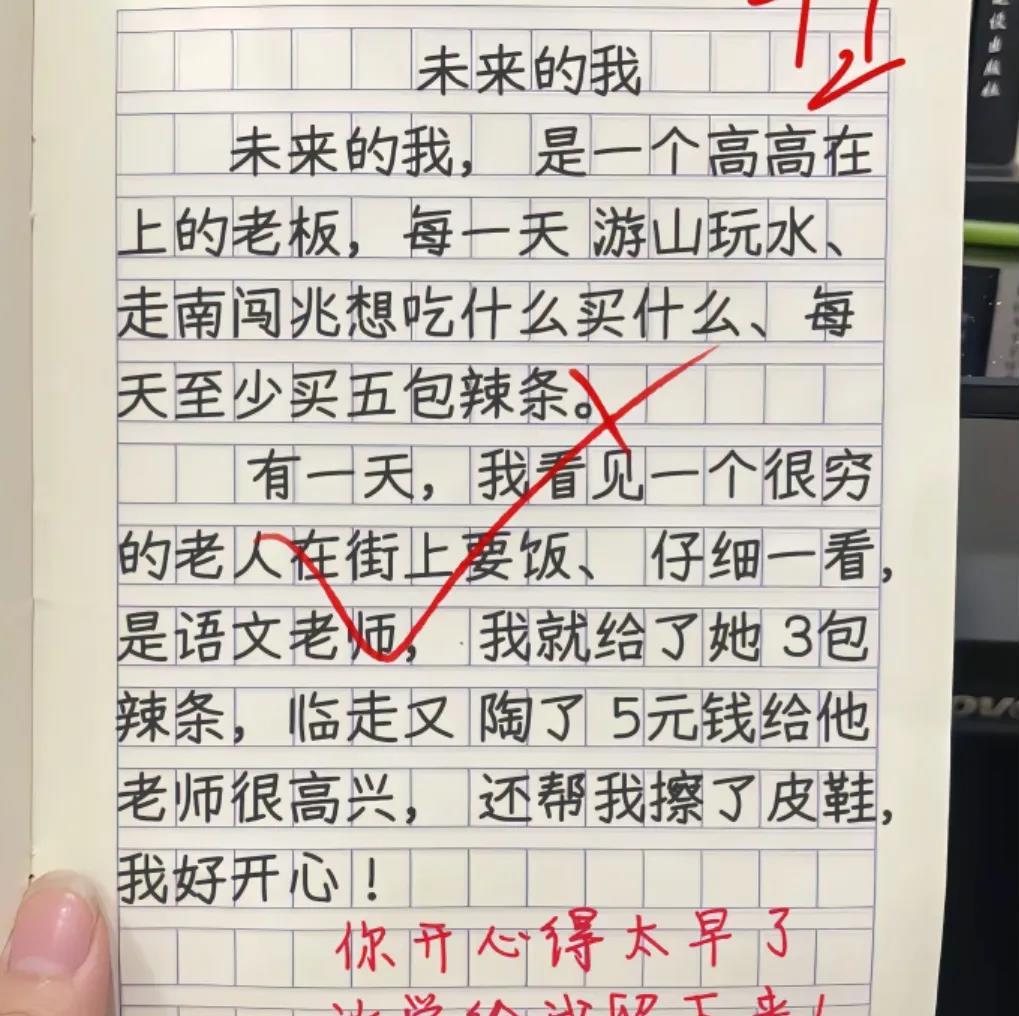 未来的我
未来的我， 是一个高高在
上的老板，每一天 游山玩水、
走南闯兆想吃什么买什么、每
天至少买五包辣条。
有一天，我看见一个很穷
的老人在街上要饭、 仔细一看，
是语文老师， 我就给了她 3包
辣条，临走又 陶了 5元钱给他
老师很高兴， 还帮我擦了皮鞋，
我好开心！
你开心得太早了